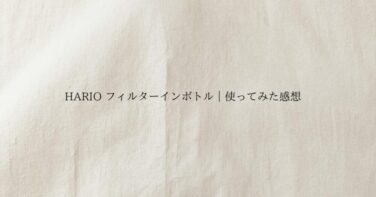 HARIO フィルターインボトル｜使ってみた感想